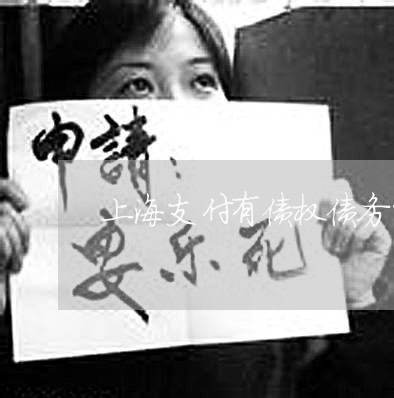 申請：
上海支付有债权债务
安乐死